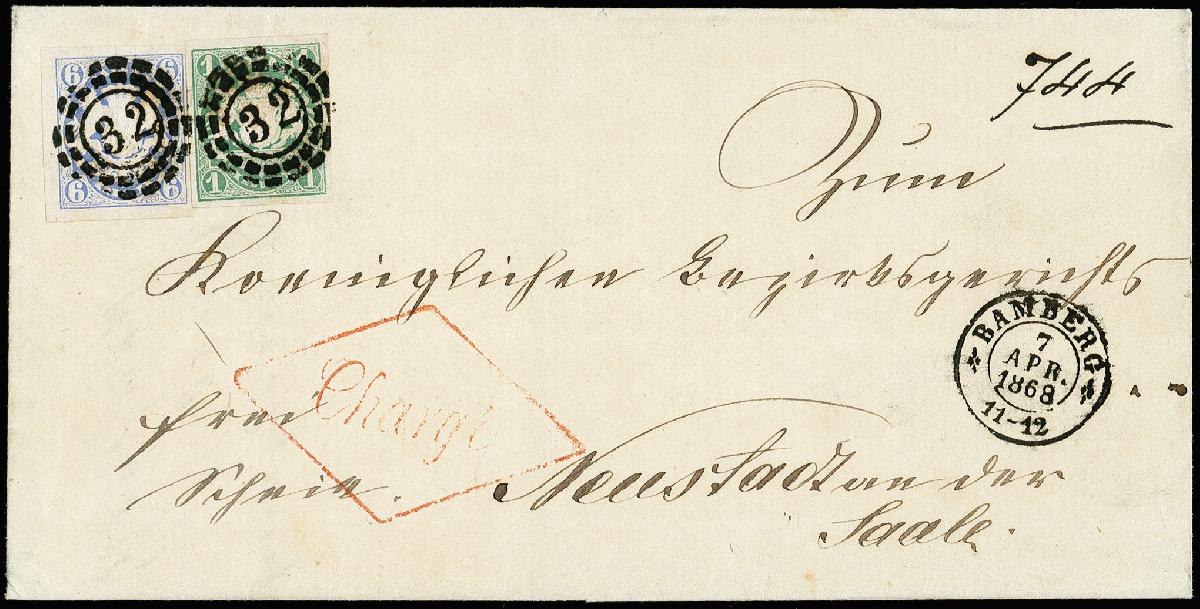 6 6 1 1
32 32
6 6 1 1
744
Zum
Koeniglichen Bezirksgerichts
BAMBERG
7
APR.
1868
11-12
Chargé
frei
Schein. Neustadt an der
Saale.